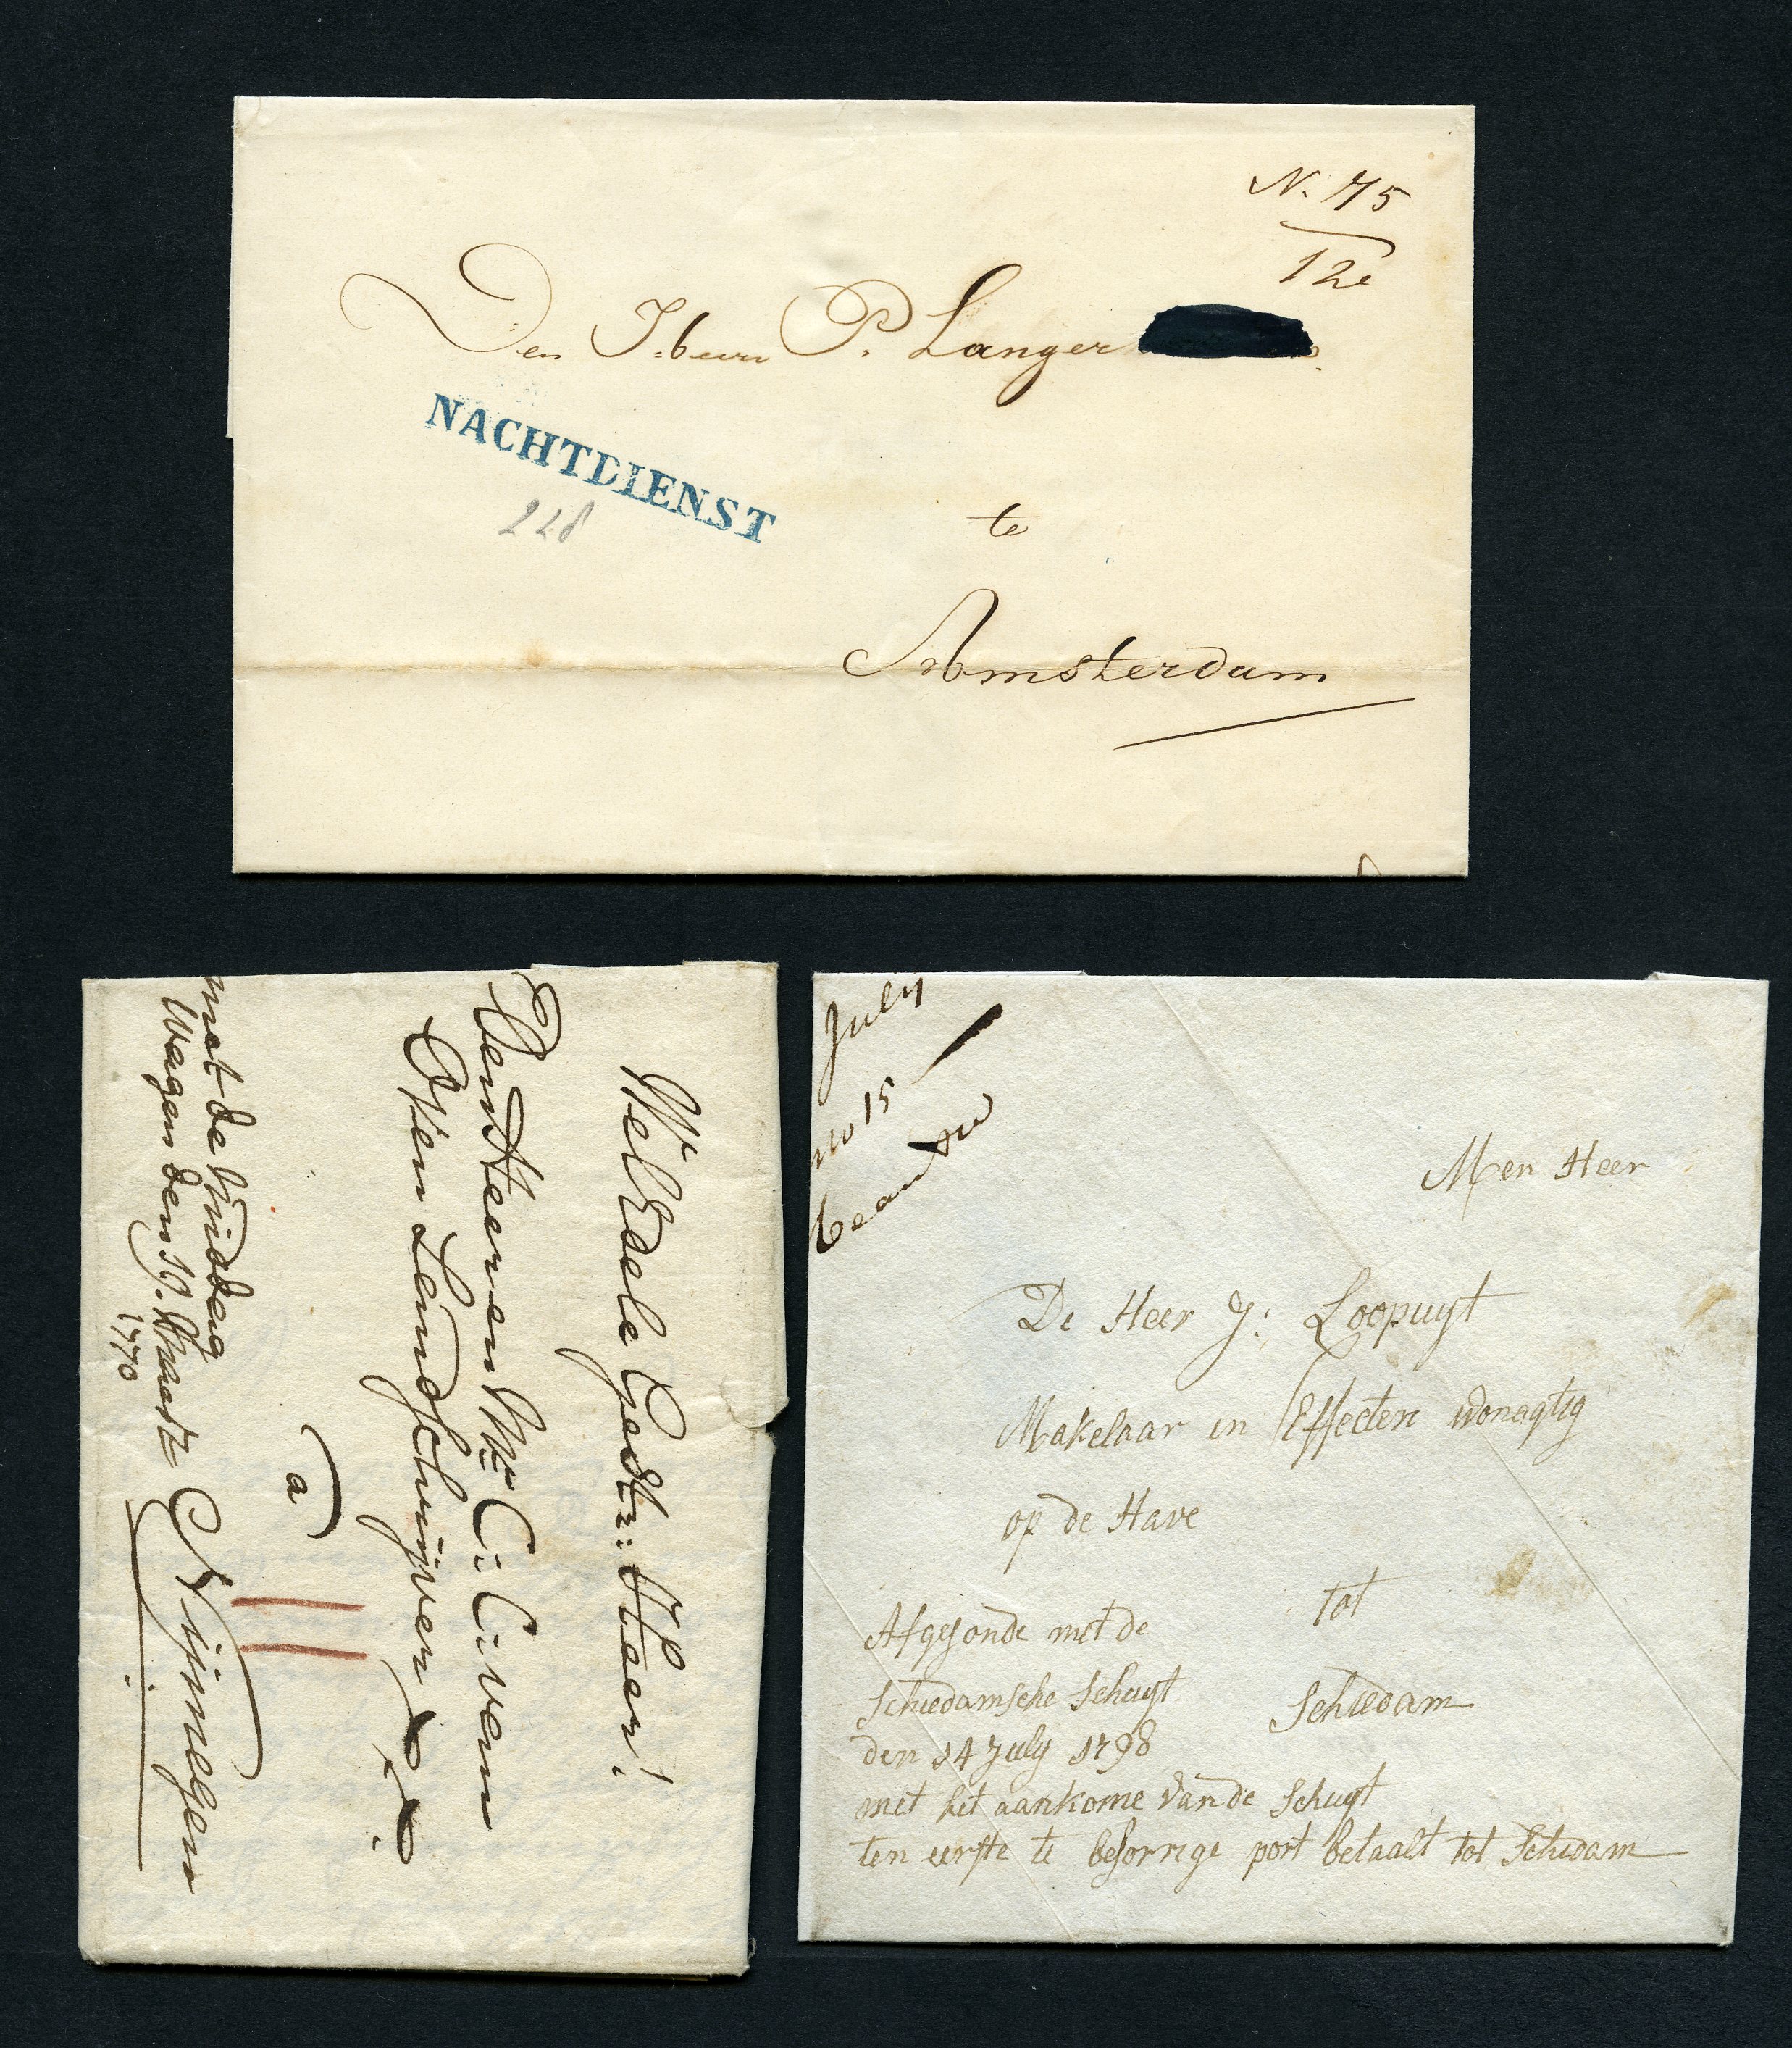 N. 75
12e
Den Heer P. Langer
NACHTDIENST
228
te
Amsterdam
WelEdele Gestr: Heer!
Den Heeren Mr C: C: ven
Otten Lendschrijver
a
Nijmegen
met de
Wagen den 19. Maart
1770
July
no 15
Men Heer
De Heer J: Loopuyt
Makelaar in Effecten wonagtig
op de Have
tot
Schiedam
Afgesonde met de
Schiedamsche Schuyt
den 14 July 1798
met het aankome van de Schuyt
ten eerste te besorrige port betaalt tot Schiedam